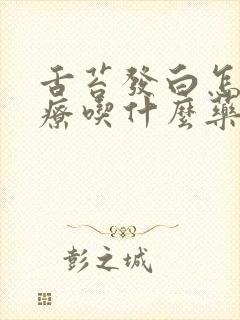 舌苔發白怎
療喫什麼藥
彭之城